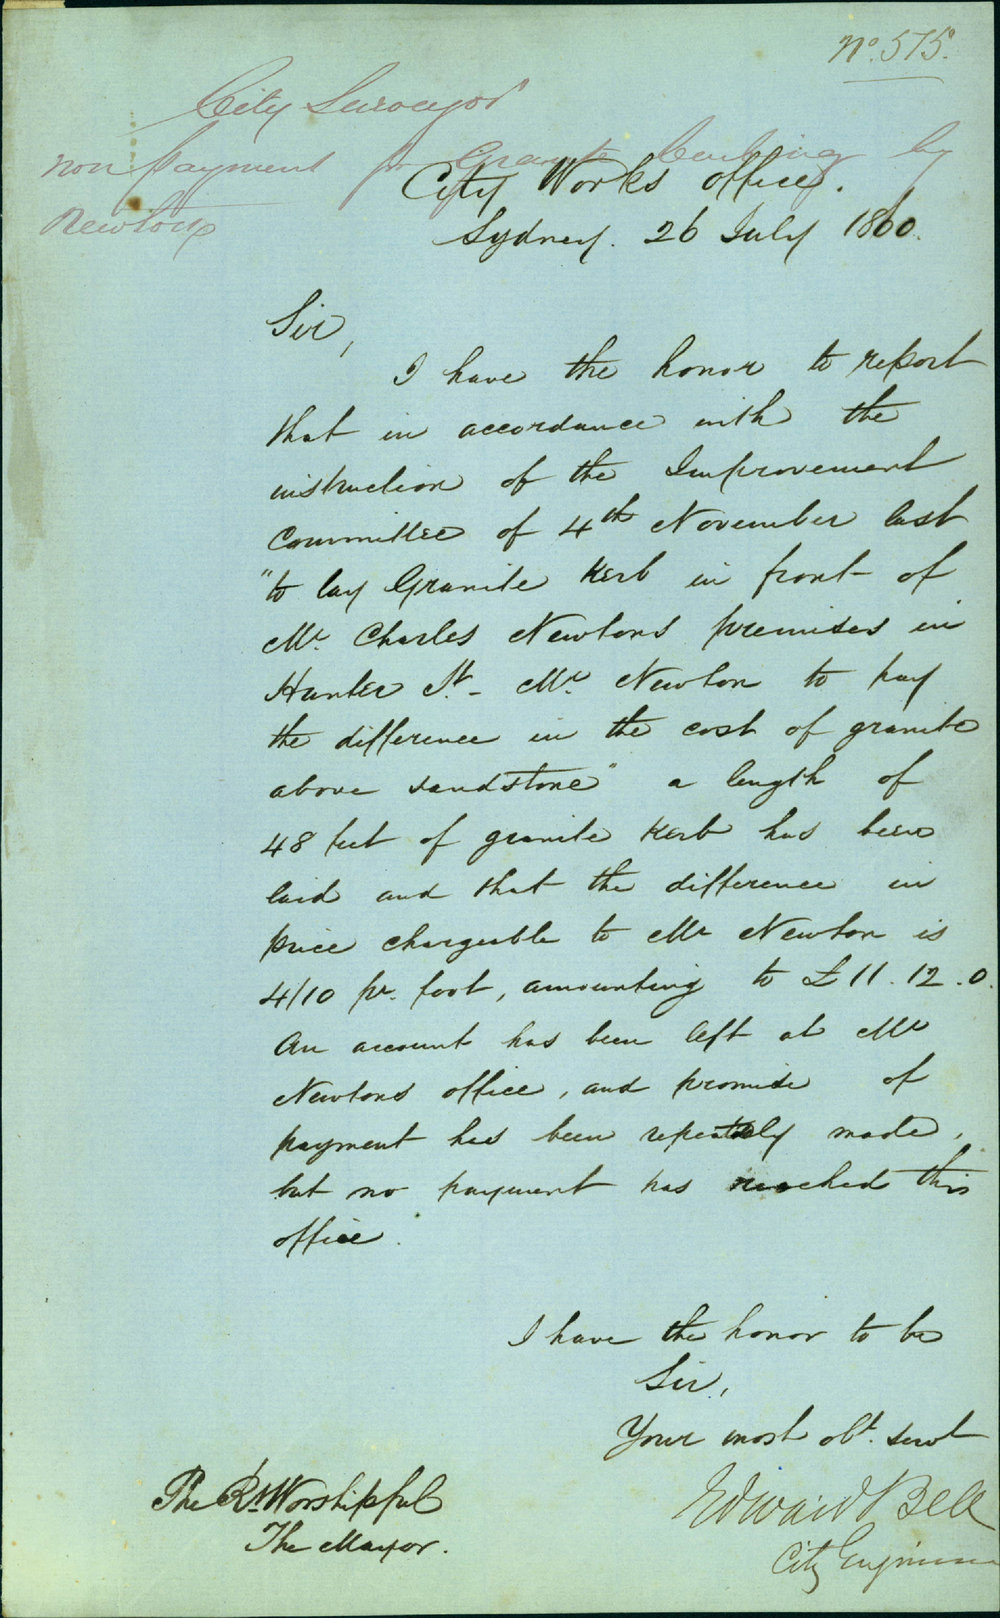 No. 575.
City Surveyor
Non payment for Granite Curbing by
Newton
City Works Office.
Sydney. 26 July 1860.
Sir,
I have the honor to report
that in accordance with the
instruction of the Improvement
Committee of 4th November last
"to lay Granite Kerb in front of
Mr. Charles Newtons premises in
Hunter St. - Mr. Newton to pay
the difference in the cost of granite
above sandstone" a length of
48 feet of granite Kerb has been
laid and that the difference in
price chargeable to Mr Newton is
4/10 pr. foot, amounting to £11.12.0.
An account has been left at Mr
Newtons office, and promise of
payment has been repeatedly made,
but no payment has reached this
office.
I have the honor to be
Sir,
Your most obt. servt
Edward Bell
City Engineer
The Rt. Worshipful
The Mayor.